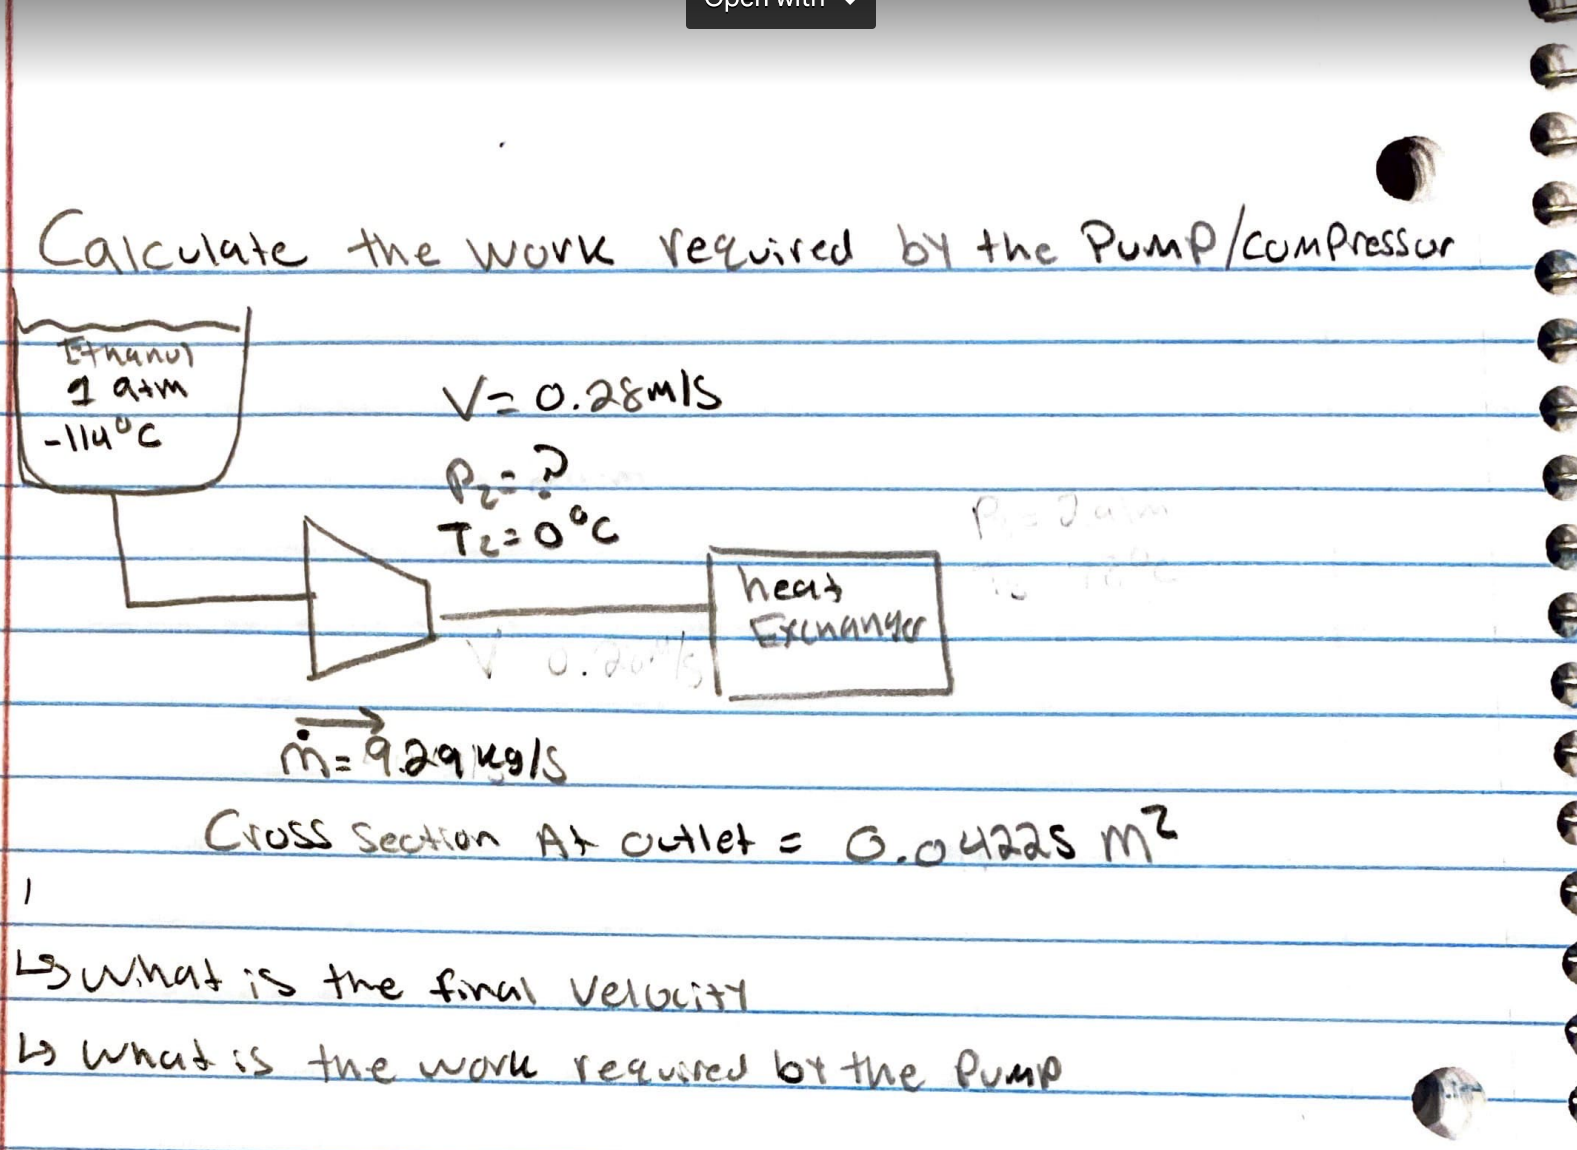 Open with
Calculate the work required by the Pump/compressor
Ethanol
1 atm
-114°C
V= 0.28m/s
P2=?
T2=0°C
heat
Exchanger
ṁ= 9.29 kg/s
Cross Section At outlet = 0.04225 m²
↳ What is the final velocity
↳ What is the work required by the Pump